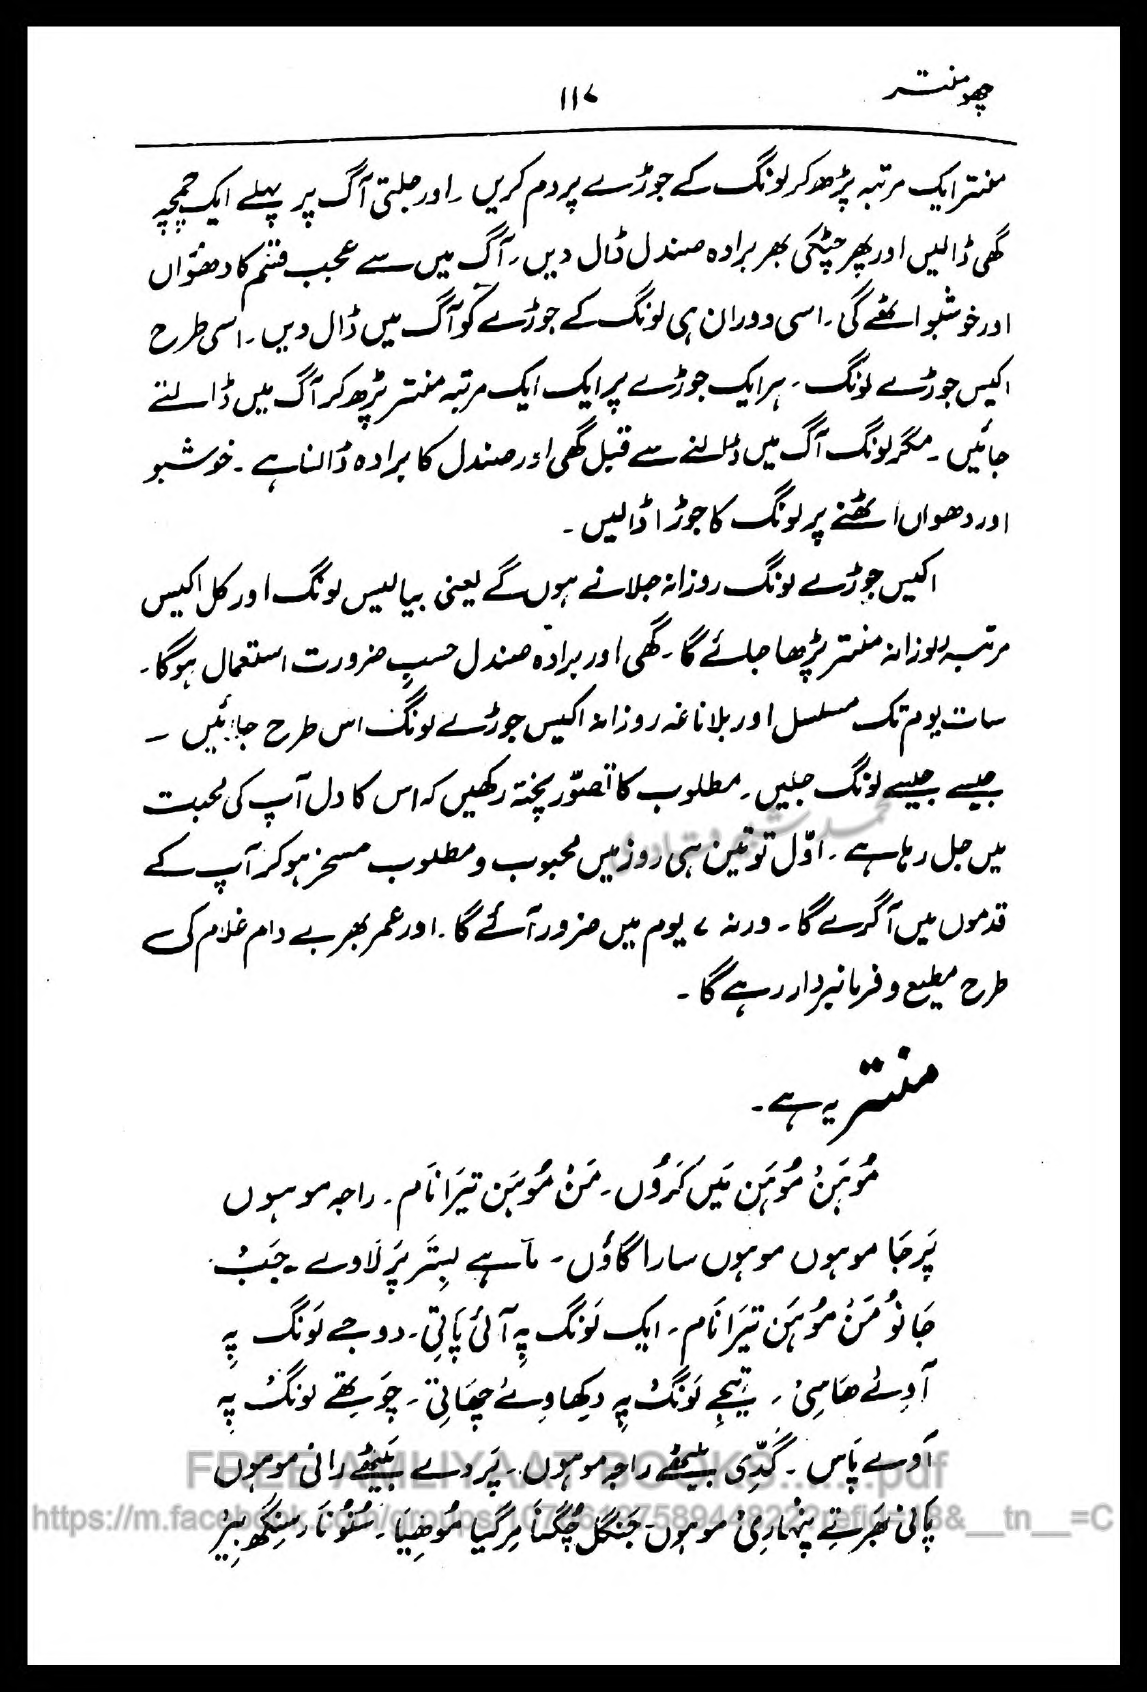 چھو منتر
۱۱۷
منتر ایک مرتبہ پڑھ کر لونگ کے جوڑے پر دم کریں ۔ اور جلتی آگ پر پہلے ایک چمچہ
گھی ڈالیں اور پھر چٹکی بھر برادہ صندل ڈال دیں ۔ آگ میں سے عجب قسم کا دھواں
اور خوشبو اٹھے گی ۔ اسی دوران ہی لونگ کے جوڑے کو آگ میں ڈال دیں ۔ اسی طرح
اکیس جوڑے لونگ ۔ ہر ایک جوڑے پر ایک ایک مرتبہ منتر پڑھ کر آگ میں ڈالتے
جائیں ۔ مگر لونگ آگ میں ڈالنے سے قبل گھی اور صندل کا برادہ ڈالنا ہے ۔ خوشبو
اور دھواں اٹھنے پر لونگ کا جوڑا ڈالیں ۔
اکیس جوڑے لونگ روزانہ جلانے ہوں گے یعنی بیالیس لونگ اور کل اکیس
مرتبہ روزانہ منتر پڑھا جائے گا ۔ گھی اور برادہ صندل حسبِ ضرورت استعمال ہوگا ۔
سات یوم تک مسلسل اور بلا ناغہ روزانہ اکیس جوڑے لونگ اس طرح جلائیں ۔
جیسے جیسے لونگ جلیں ۔ مطلوب کا تصوّر پختہ رکھیں کہ اس کا دل آپ کی محبت
میں جل رہا ہے ۔ اوّل تو تین ہی روز میں محبوب و مطلوب مسخر ہو کر آپ کے
قدموں میں آ گرے گا ۔ ورنہ ۷ یوم میں ضرور آئے گا ۔ اور عمر بھر بے دام غلام کی
طرح مطیع و فرمانبردار رہے گا ۔
منتر یہ ہے ۔
مُوہَنْ مُوہَن مَیں کَروُں ۔ مَنْ مُوہَن تیَرا نَام ۔ راجہ موہوں
پَرجَا موہوں موہوں سارا گاؤں ۔ مآہے بِستَر پَر لَاوے ۔ جَبْ
جَانُو مَنْ مُوہَن تیَرا نَام ۔ ایک لَونگ پِہ آئی پَاتِی ۔ دوجے لَونگ پِہ
آوِئے ھَاسِیْ ۔ تِیجے لَونگْ پِہ دِکھاوِئے چھَاتِی ۔ چَوتھے لونگْ پِہ
آوے پَاس ۔ گَدّی بیٹھے راجہ موہوں ۔ پَردے بَیٹھے رانی موہوں
پَانی بَھرتے پنہاریْ موہوں جَنگل چُگتَا مِرگیا مُوھِنیَا ۔
محمد شبیر قادری
FREE AMLIYAAT BOOKS......pdf